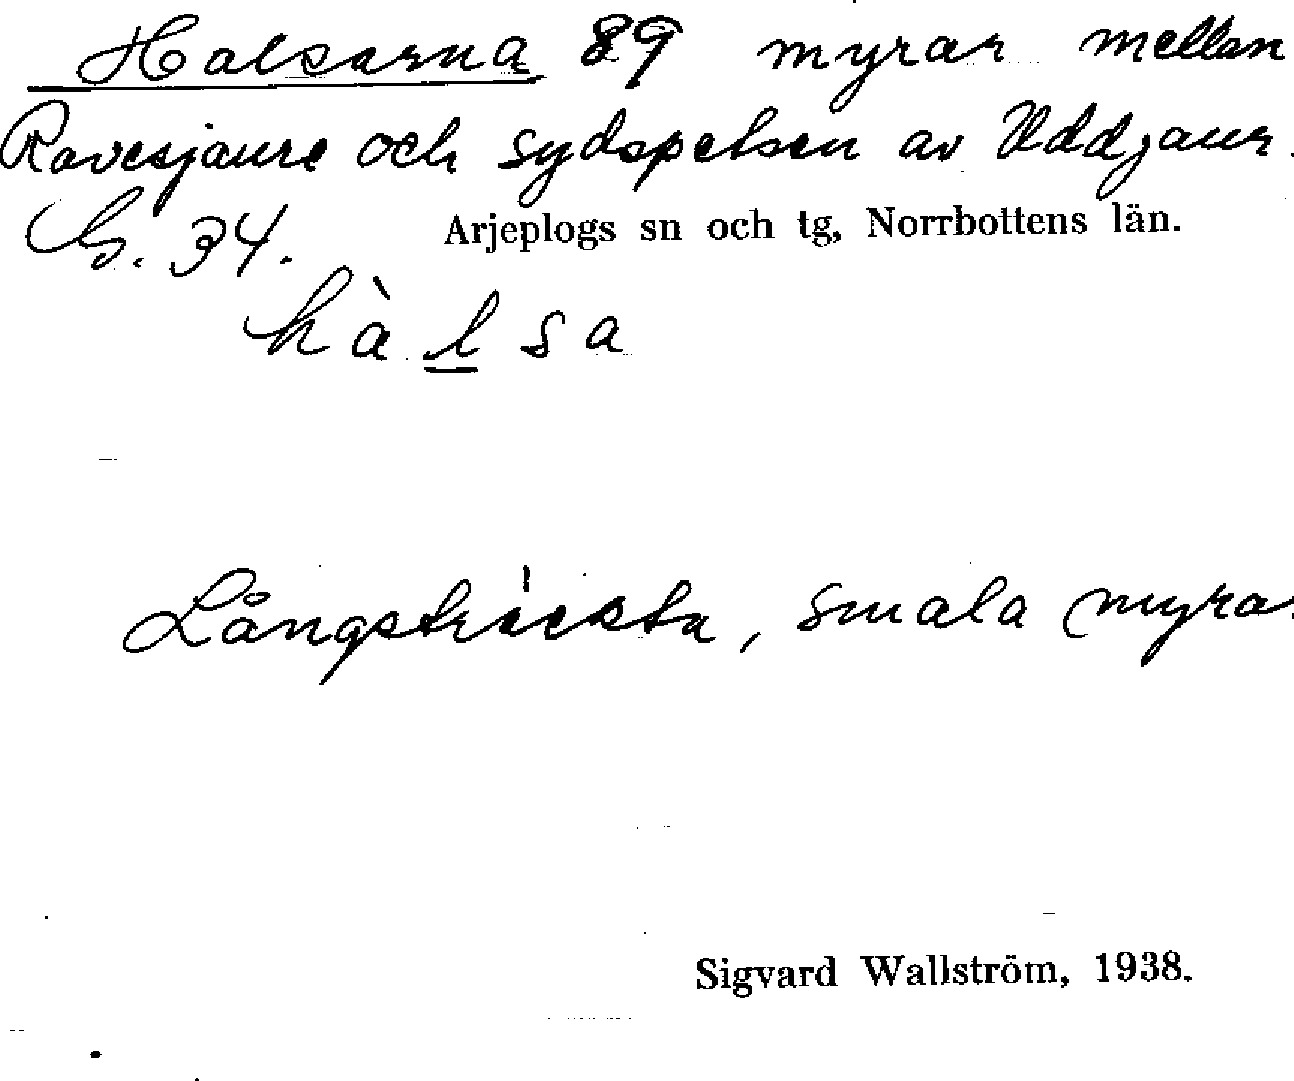 Halsarna 89 myrar mellan
Ravesjaure och sydspetsen av Uddjaur.
G. 34. Arjeplogs sn och tg, Norrbottens län.
hàlsa
Långsträckta, smala myrar
Sigvard Wallström, 1938.